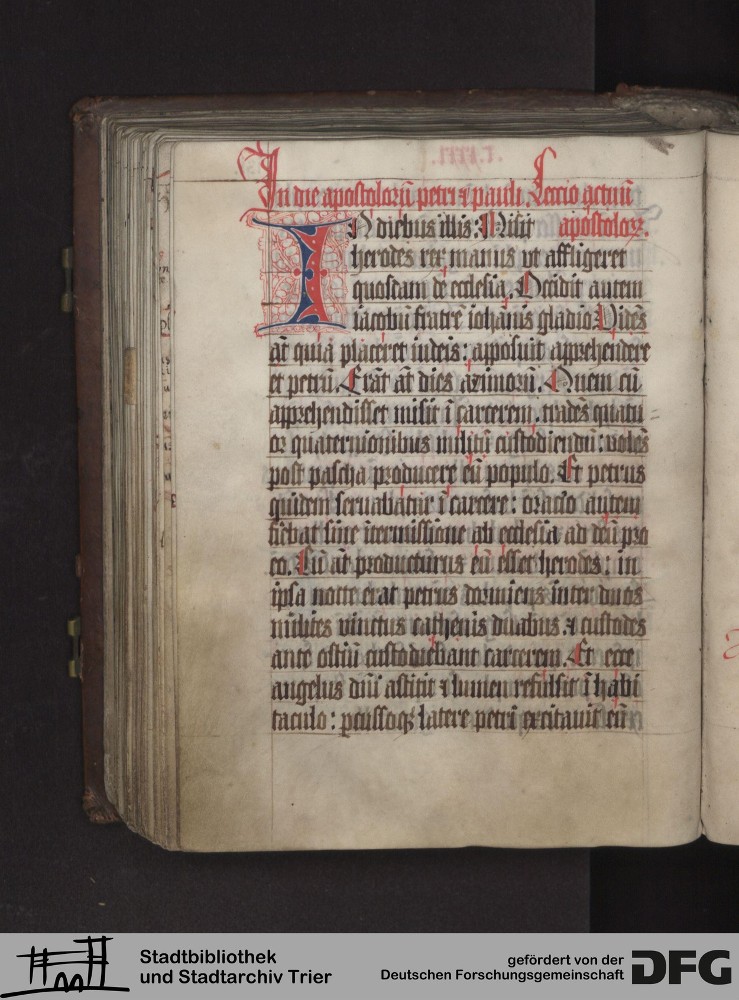 In die apostolorū petri ⁊ pauli. Lectio actuū
apostoloꝝ.
IN diebus illis: Misit
herodes rex manus vt affligeret
quosdam de ecclesia. Occidit autem
iacobū fratrē iohānis gladio. Vidēs
āt quia placeret iudeis: apposuit apprehendere
et petrū. Erāt āt dies azimorū. Quem cū
apprehendisset misit ī carcerem. tradēs quatu
or quaternionibus militū custodiendū: volēs
post pascha producere eū populo. Et petrus
quidem seruabatur ī carcere: oracio autem
fiebat sine ītermissione ab ecclesia ad deū pro
eo. Cū āt producturus eū esset herodes: in
ipsa nocte erat petrus dormiens inter duos
milites vinctus cathenis duabus. ⁊ custodes
ante ostiū custodiebant carcerem. Et ecce
angelus dn̄i astitit ⁊ lumen refulsit ī habi
taculo: ꝑcussoqꝫ latere petri excitauit eū
Stadtbibliothek
und Stadtarchiv Trier
gefördert von der
Deutschen Forschungsgemeinschaft
DFG